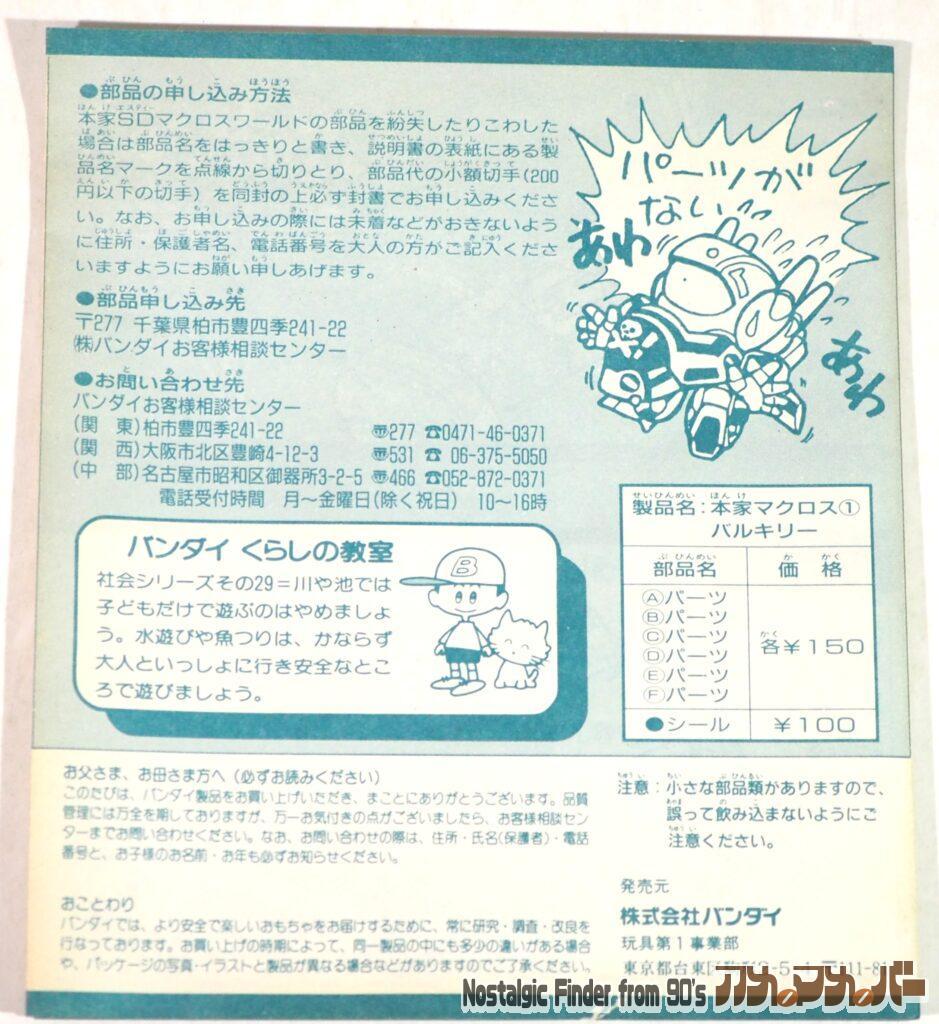 ●部品の申し込み方法
本家SDマクロスワールドの部品を紛失したりこわした
場合は部品名をはっきりと書き、説明書の表紙にある製
品名マークを点線から切りとり、部品代の小額切手(200
円以下の切手)を同封の上必ず封書でお申し込みくださ
い。なお、お申し込みの際には未着などがおきないよう
に住所・保護者名、電話番号を大人の方がご記入くださ
いますようにお願い申しあげます。
●部品申し込み先
〒277 千葉県柏市豊四季241-22
㈱バンダイお客様相談センター
●お問い合わせ先
バンダイお客様相談センター
(関 東)柏市豊四季241-22 〠277 ☎0471-46-0371
(関 西)大阪市北区豊崎4-12-3 〠531 ☎06-375-5050
(中 部)名古屋市昭和区御器所3-2-5 〠466 ☎052-872-0371
電話受付時間 月〜金曜日(除く祝日) 10〜16時
パーツが
ない
あわ
あわ
バンダイ くらしの教室
社会シリーズその29=川や池では
子どもだけで遊ぶのはやめましょ
う。水遊びや魚つりは、かならず
大人といっしょに行き安全なとこ
ろで遊びましょう。
B
製品名:本家マクロス①
バルキリー
部品名 価格
Ⓐパーツ
Ⓑパーツ
Ⓒパーツ
Ⓓパーツ
Ⓔパーツ
Ⓕパーツ
各¥150
●シール ¥100
お父さま、お母さま方へ(必ずお読みください)
このたびは、バンダイ製品をお買い上げいただき、まことにありがとうございます。品質
管理には万全を期しておりますが、万一お気付きの点がございましたら、お客様相談セン
ターまでお問い合わせください。なお、お問い合わせの際は、住所・氏名(保護者)・電話
番号と、お子様のお名前・お年も必ずお知らせください。
おことわり
バンダイでは、より安全で楽しいおもちゃをお届けするために、常に研究・調査・改良を
行なっております。お買い上げの時期によって、同一製品の中にも多少の違いがある場合
や、パッケージの写真・イラストと製品が異なる場合などがありますのでご了承ください。
注意:小さな部品類がありますので、
誤って飲み込まないようにご
注意ください。
発売元
株式会社バンダイ
玩具第1事業部
東京都台東区
Nostalgic Finder from 90's